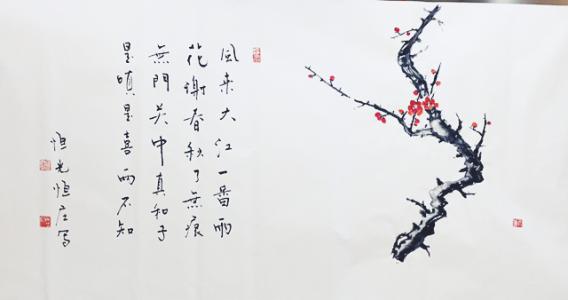 風来大江一番雨
花謝春秋了無痕
無門关中真和子
是嗔是喜兩不知
恒光恒写